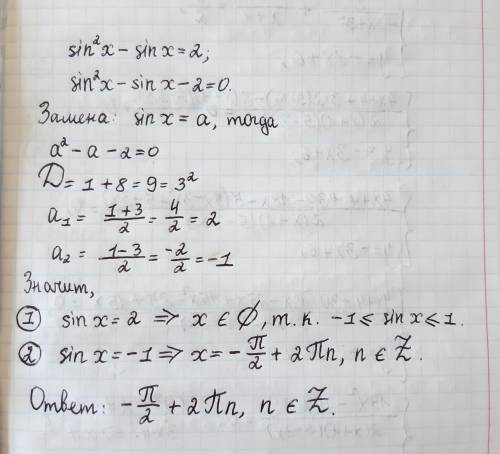 sin²x − sin x = 2;
sin²x − sin x − 2 = 0.
Замена: sin x = a, тогда
a² − a − 2 = 0
D = 1 + 8 = 9 = 3²
a₁ = (1+3)/2 = 4/2 = 2
a₂ = (1−3)/2 = −2/2 = −1
Значит,
① sin x = 2 => x ∈ ∅, т.к. −1 ≤ sin x ≤ 1.
② sin x = −1 => x = −π/2 + 2πn, n ∈ Z.
Ответ: −π/2 + 2πn, n ∈ Z.